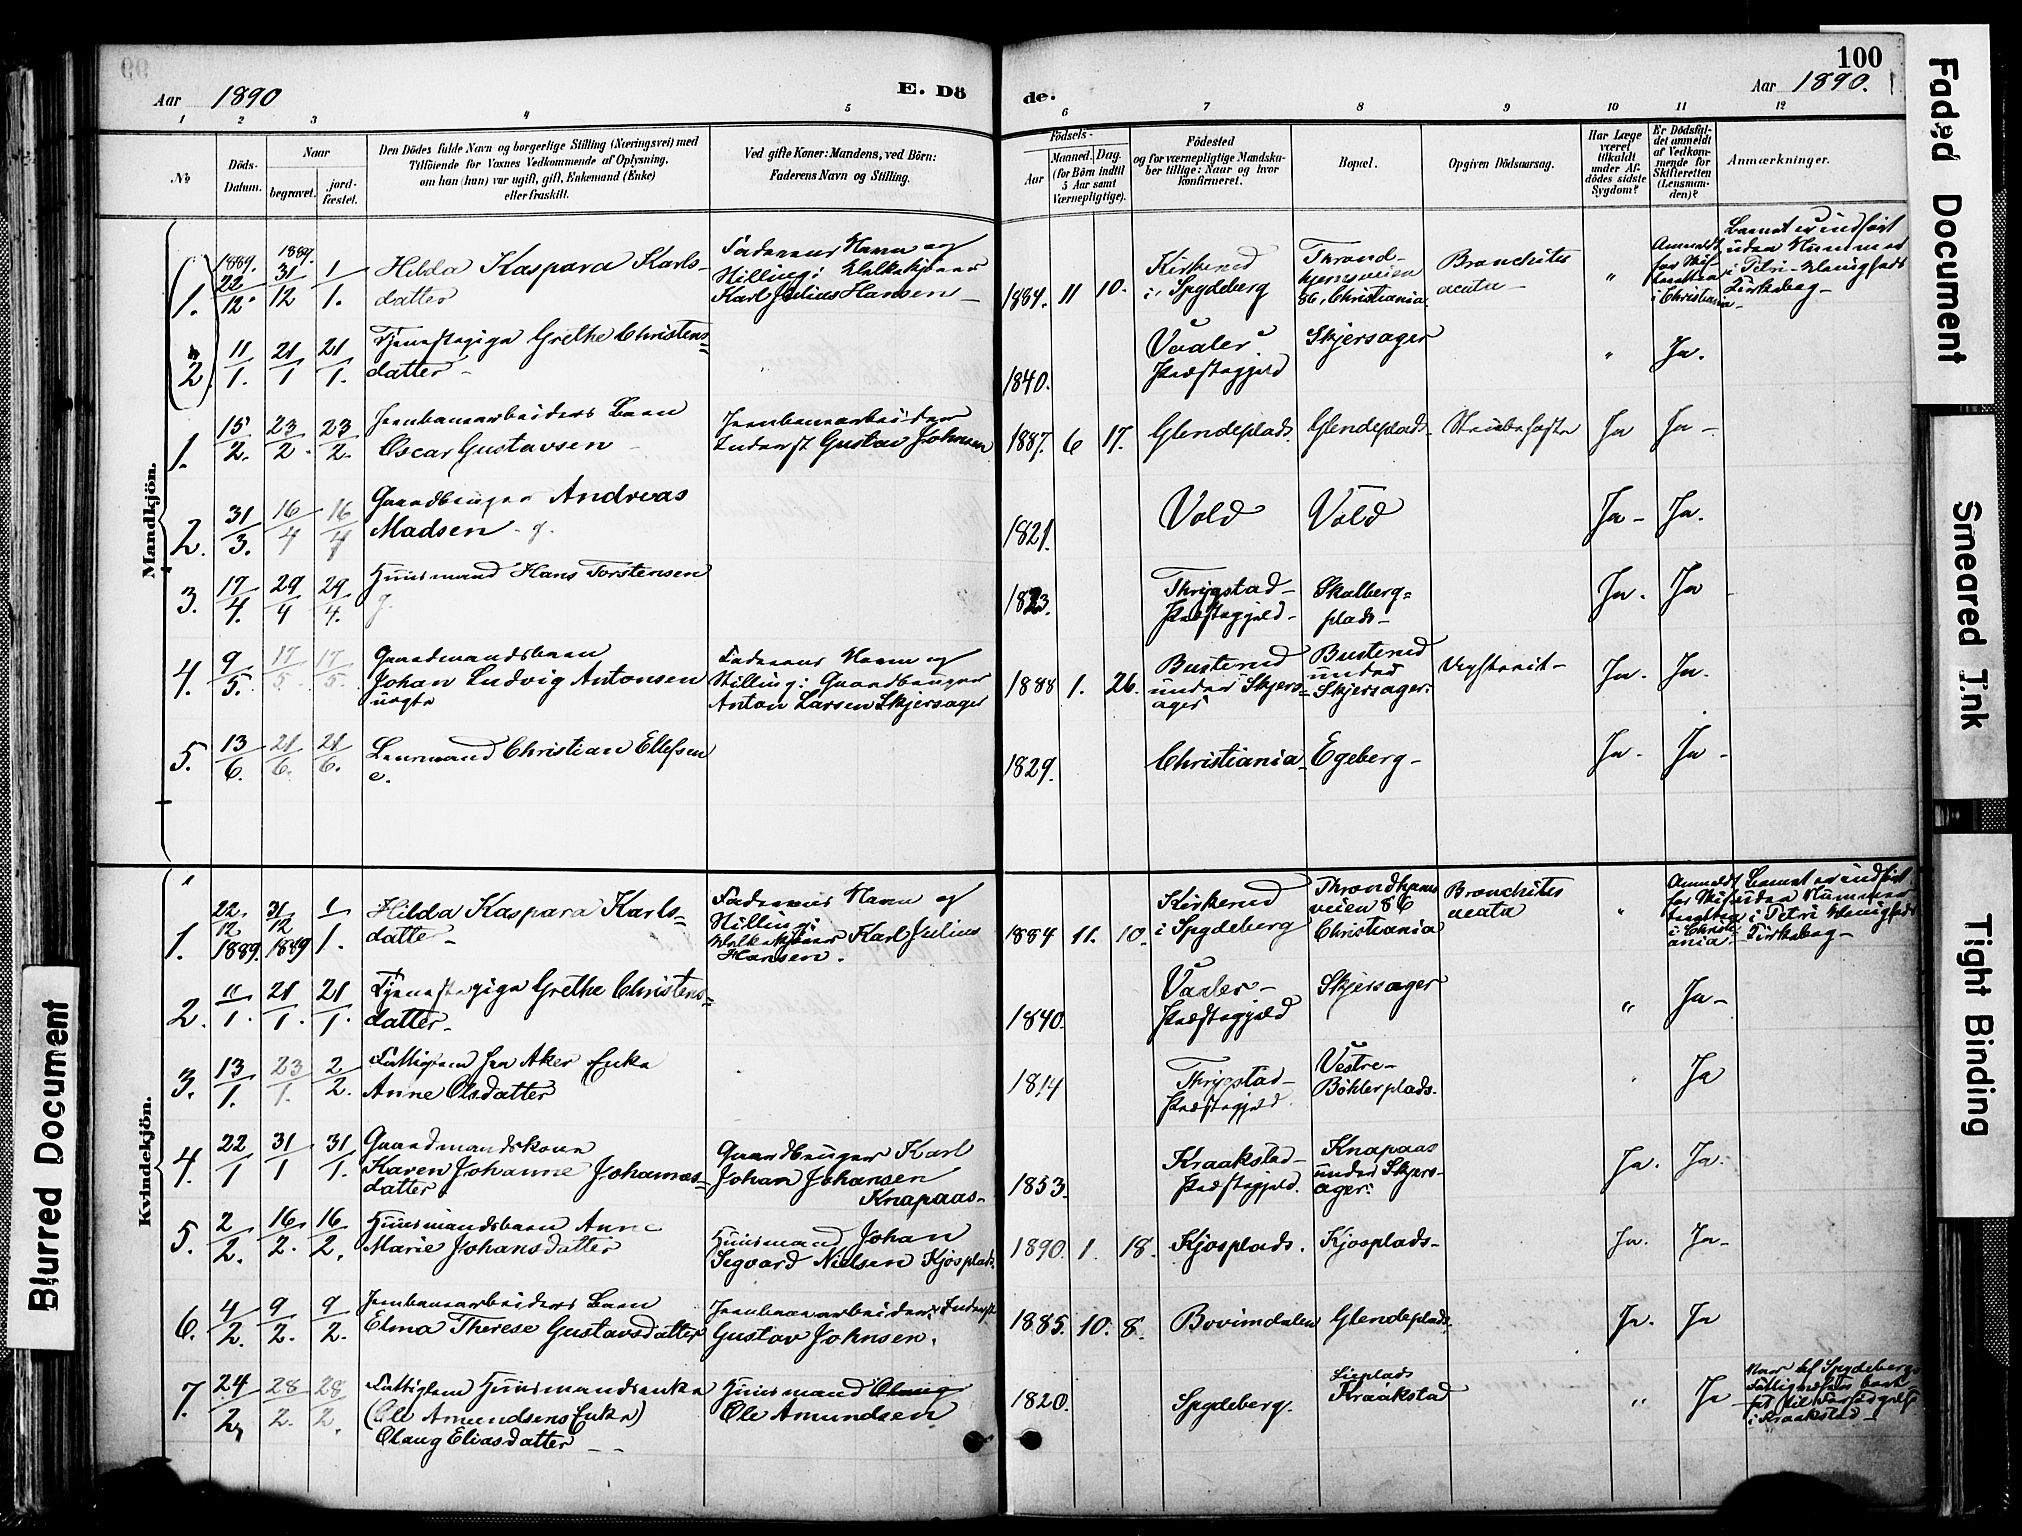 100
Aar 1890
E. Dö
de.
Aar 1890.
1 2 3 4 5 6 7 8 9 10 11 12
No
Döds-
Datum.
Naar
begravet.
jord-
fæstet.
Den Dödes fulde Navn og borgerlige Stilling (Næringsvei) med
Tilföiende for Voxnes Vedkommende af Oplysning,
om han (hun) var ugift, gift, Enkemand (Enke)
eller fraskilt.
Ved gifte Koner: Mandens, ved Börn:
Faderens Navn og Stilling.
Födsels-
Aar
Maaned.
Dag.
(for Börn indtil
5 Aar samt
Værnepligtige).
Födested
og for værnepligtige Mandska-
ber tillige: Naar og hvor
konfirmeret.
Bopæl.
Opgiven Dödsaarsag.
Har Læge
været
tilkaldt
under Af-
dödes sidste
Sygdom?
Er Dödsfal-
det anmeldt
af Vedkom-
mende for
Skifteretten
(Lensman-
den)?
Anmærkninger.
Mandkjön.
1. 1889. 22/12. 1889. 31/12 1/1.
Hilda Kaspara Karls-
datter
Faderens Navn og
Stilling:
Karl Julius Hansen
1884. 11 10.
Kirkerud
i Spydeberg
Thrond-
hjemsveien
86, Christiania
Bronchites
acuta
"
Anmeldt
for Skif-
teretten
i Christiania
Barnet er indført
uden Nummer
i Petri Menigheds
Kirkebog
2. 11/1. 21/1 21/1.
Tjenestepige Grethe Christens=
datter
1840.
Vaaler
Præstegjeld
Skjersager
"
Ja.
1. 15/2. 23/2. 23/2.
Jernbanearbeiders Barn
Oscar Gustavsen
Jernbanearbeider
Inderst Gustav Johnsen
1887. 6 17.
Glendeplads
Glendeplads
Strubehoste
Ja
Ja
2. 31/3. 16/4 16/4
Gaardbruger Andreas
Madsen g.
1821.
Vold
Vold
Ja
Ja.
3. 17/4. 29/4 29/4.
Huusmand Hans Torstensen
g.
1823.
Thrygstad
Præstegjeld
Skulberg=
plads
Ja.
Ja
4. 9/5. 17/5. 17/5.
Gaardmandsbarn
Johan Ludvig Antonsen
uægte
Faderens Navn og
Stilling: Gaardbruger
Anton Larsen Skjersager
1888 1. 26.
Busterud
under Skjers=
ager
Busterud
under
Skjersager.
Ja.
Ja.
5. 13/6. 21/6. 21/6.
Lensmand Christian Ellefsen
e.
1829.
Christiania
Egeberg
Ja.
Ja
Kvindekjön.
1. 22/12 1889. 31/12 1889 1/1.
Hilda Kaspara Karls=
datter
Faderens Navn og
Stilling:
Karl Julius
Hansen.
1884 11. 10.
Kirkerud
i Spydeberg
Throndhjems
veien 86
Christiania
Bronchites
acuta
"
Anmeldt
for Skif
teretten
i Christi
ania
Barnet er indført
uden Nummer
i Petri Menigheds
Kirkebog
2. 11/1. 21/1. 21/1.
Tjenestepige Grethe Christens=
datter
1840.
Vaaler
Præstegjeld
Skjersager
"
Ja
3. 13/1. 23/1. 2/2.
Fattiglem fra Aker Enke
Anne Olsdatter
1814
Thrygstad
Præstegjeld
Vestre
Böhlerplads.
Ja
4. 22/1 31/1 31/1.
Gaardmandskone
Karen Johanne Johannes=
datter
Gaardbruger Karl
Johan Johansen
Knapaas
1853.
Kraakstad
Præstegjeld.
Knapaas
under Skjers-
ager.
Ja.
Ja.
5. 2/2. 16/2. 16/2.
Huusmandsbarn Anne
Marie Johansdatter
Huusmand Johan
Segvard Nielsen Kjosplads
1890 1. 18.
Kjosplads.
Kjosplads
Ja.
Ja
6. 4/2. 9/2. 9/2.
Jernbanearbeiders Barn
Elma Therese Gustavsdatter
Jernbanearbeider, Inderst
Gustav Johnsen.
1885. 10. 8.
Bovimdalen
Glendeplads
Ja.
Ja
7. 24/2. 28/2. 28/2.
Fattiglem Huusmandsenke
(Ole Amundsens Enke)
Olaug Eliasdatter
Huusmand Olaug
Ole Amundsen
1820.
Spydeberg.
Lieplads
Kraakstad
"
Ja
Var af Spydebergs
Fattigvæsen bort
sat til Forsørgelse
i Kraakstad
Faded Document
Smeared Ink
Tight Binding
Blurred Document